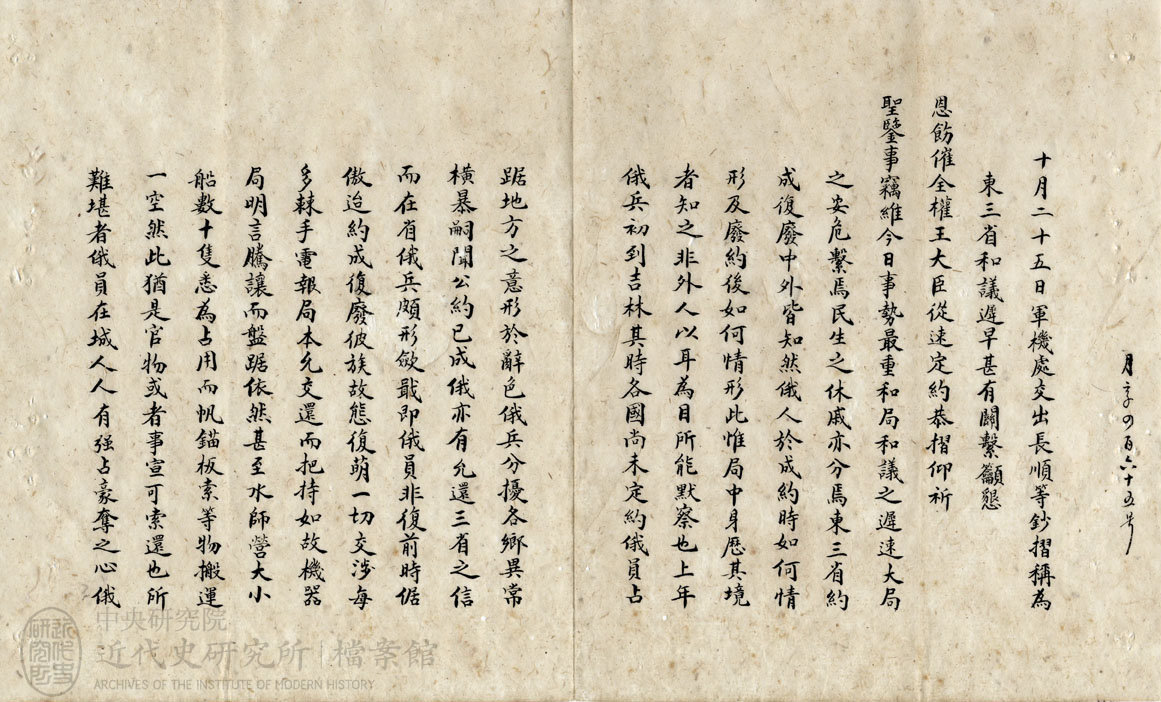 月字四百六十五号
十月二十五日軍機處交出長順等鈔摺稱為
東三省和議遲早甚有關繫籲懇
恩飭催全權王大臣從速定約恭摺仰祈
聖鑒事竊維今日事勢最重和局和議之遲速大局
之安危繫焉民生之休戚亦分焉東三省約
成復廢中外皆知然俄人於成約時如何情
形及廢約後如何情形此惟局中身歷其境
者知之非外人以耳為目所能默察也上年
俄兵初到吉林其時各國尚未定約俄員占
踞地方之意形於辭色俄兵分擾各鄉異常
橫暴嗣聞公約已成俄亦有允還三省之信
而在省俄兵頗形斂戢即俄員非復前時倨
傲迨約成復廢彼族故態復萌一切交涉每
多棘手電報局本允交還而把持如故機器
局明言騰讓而盤踞依然甚至水師營大小
船數十隻悉為占用而帆錨板索等物搬運
一空然此猶是官物或者事宣可索還也所
難堪者俄員在城人人有强占豪奪之心俄
中央研究院
近代史研究所 | 檔案館
ARCHIVES OF THE INSTITUTE OF MODERN HISTORY